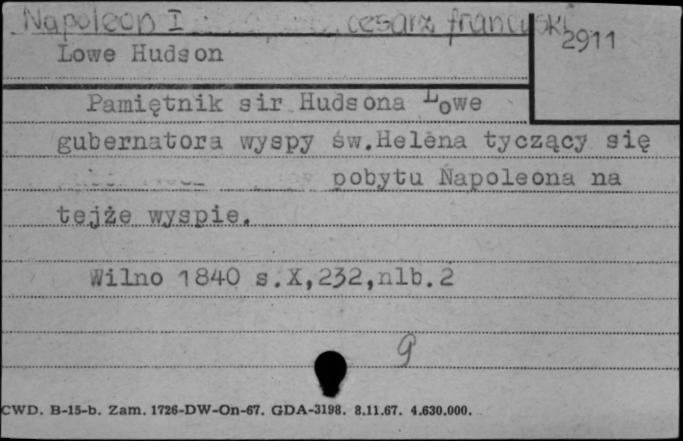 Napoleon I , cesarz francuski
2911
Lowe Hudson
Pamiętnik sir Hudsona Lowe
gubernatora wyspy św.Helena tyczący się
pobytu Napoleona na
tejże wyspie.
Wilno 1840 s.X,232,nlb.2
9
CWD. B-15-b. Zam. 1726-DW-On-67. GDA-3198. 8.11.67. 4.630.000.